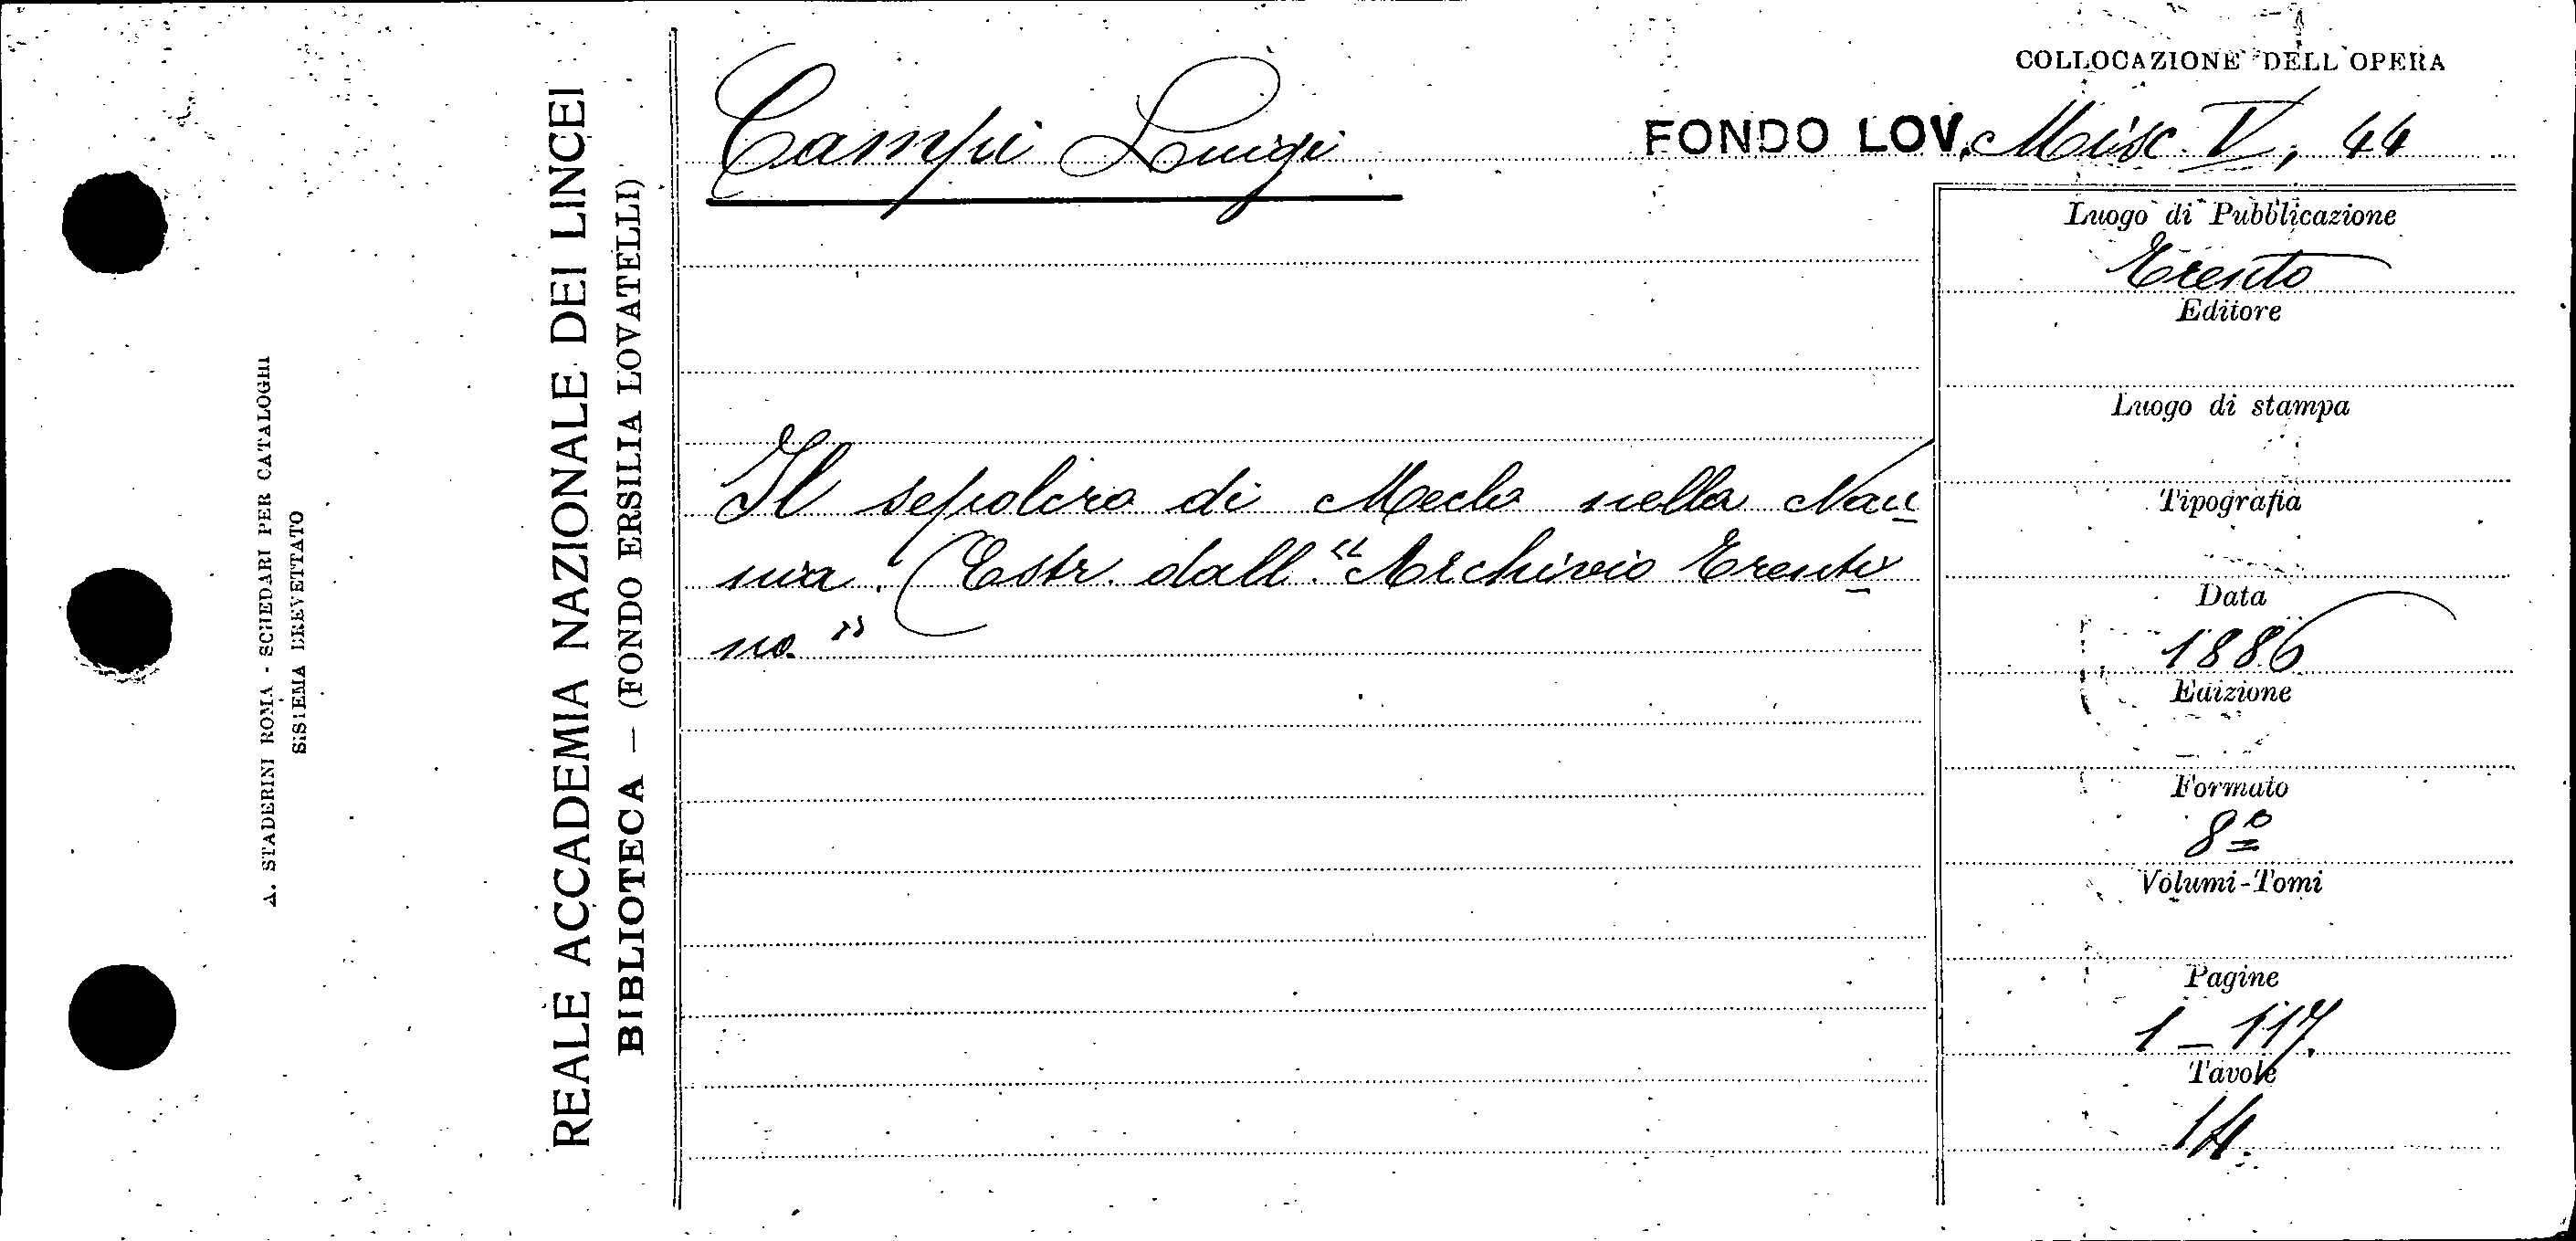 A. STADERINI ROMA - SCHEDARI PER CATALOGHI
SISTEMA BREVETTATO
REALE ACCADEMIA NAZIONALE DEI LINCEI
BIBLIOTECA — (FONDO ERSILIA LOVATELLI)
COLLOCAZIONE DELL'OPERA
Campi Luigi
FONDO LOV. Misc. V, 44
Il sepolcro di Meclo nella Nau
nia. (Estr. dall'"Archivio Trenti
no"
Luogo di Pubblicazione
Trento
Editore
Luogo di stampa
Tipografia
Data
1886
Edizione
Formato
8º
Volumi-Tomi
Pagine
1 - 117.
Tavole